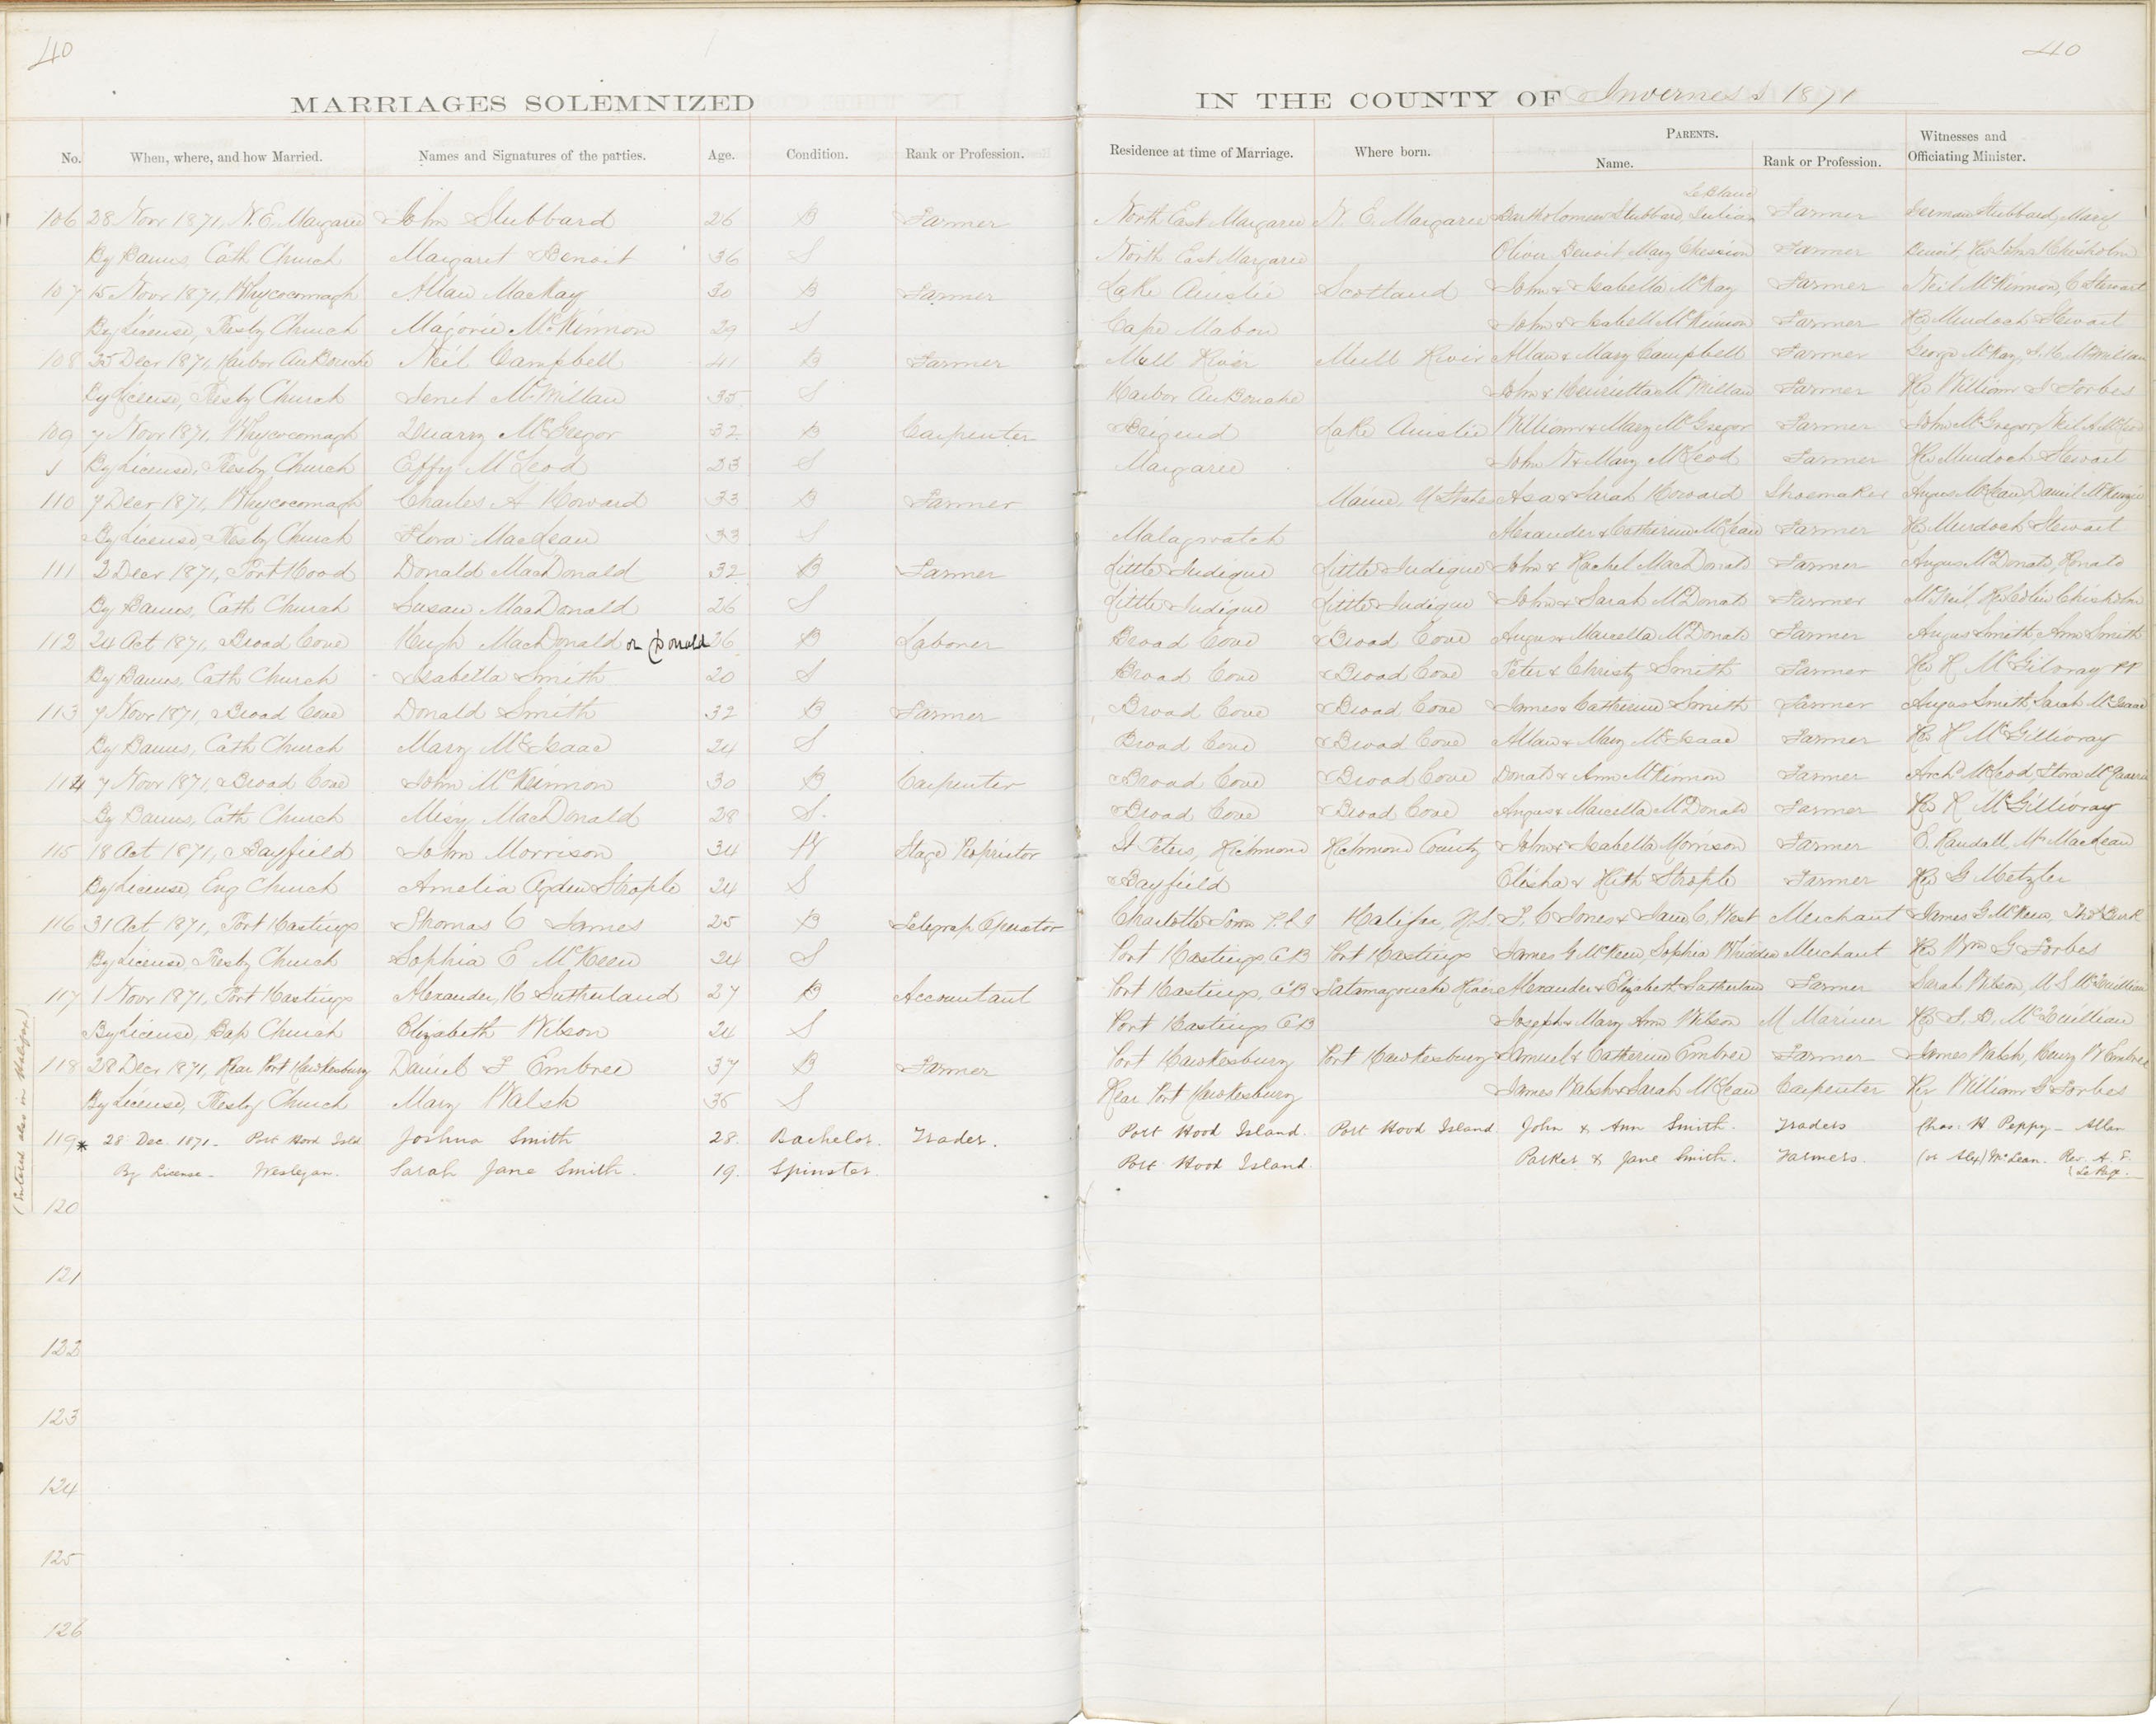 40
40
MARRIAGES SOLEMNIZED IN THE COUNTY OF Inverness 1871
No. When, where, and how Married. Names and Signatures of the parties. Age. Condition. Rank or Profession. Residence at time of Marriage. Where born. PARENTS. Name. Rank or Profession. Witnesses and Officiating Minister.
LeBlanc
106 28 Novr 1871, N.E. Margaree John Stubbard 26 B Farmer North East Margaree N. E. Margaree Bartholomew Stubbard, Julian Farmer Stubbard, Mary
By Banns, Cath Church Margaret Benoit 36 S North East Margaree Oliver Benoit Mary Farmer Benoit, Rev John Chisholm
107 15 Novr 1871, Whycocomagh Allan MacKay 30 B Farmer Lake Ainslie Scotland John & Isabella McKay Farmer Neil McKinnon, C Stewart
By License, Presby Church Majorie McKinnon 29 S Cape Mabou John & Isabell McKinnon Farmer Rev Murdoch Stewart
108 25 Decr 1871, Harbor Au Bouche Neil Campbell 41 B Farmer Mull River Mull River Allan & Mary Campbell Farmer George McKay, McMillan
By License, Presby Church Jenet McMillan 35 S Harbor Au Bouche John & Henrietta McMillan Farmer Rev William G Forbes
109 7 Novr 1871, Whycocomagh McGregor 32 B Carpenter Brigend Lake Ainslie William & Mary McGregor Farmer John McGregor, Neil A McLeod
By License, Presby Church Effy McLeod 23 S Margaree John & Mary McLeod Farmer Rev Murdoch Stewart
110 7 Decr 1871, Whycocomagh Charles A Howard 33 B Farmer Maine, U States Asa & Sarah Howard Shoemaker Angus McLean, Daniel McKenzie
By License, Presby Church Flora MacLean 33 S Malagwatch Alexander & Catherine McLean Farmer Rev Murdoch Stewart
111 2 Decr 1871, Port Hood Donald MacDonald 32 B Farmer Little Judique Little Judique John & Rachel MacDonald Farmer Angus McDonald, Ronald
By Banns, Cath Church Susan MacDonald 26 S Little Judique Little Judique John & Sarah McDonald Farmer McNeil, Rev Colin Chisholm
112 24 Oct 1871, Broad Cove Hugh MacDonald or Donald 26 B Laborer Broad Cove Broad Cove Angus & Marcella McDonald Farmer Angus Smith, Ann Smith
By Banns, Cath Church Isabella Smith 20 S Broad Cove Broad Cove Peter & Christy Smith Farmer Rev R McGilvray PP
113 7 Novr 1871, Broad Cove Donald Smith 32 B Farmer Broad Cove Broad Cove James & Catherine Smith Farmer Angus Smith, Sarah McIsaac
By Banns, Cath Church Mary McIsaac 24 S Broad Cove Broad Cove Allan & Mary McIsaac Farmer Rev R McGillivray
114 7 Novr 1871, Broad Cove John McKinnon 30 B Carpenter Broad Cove Broad Cove Donald & Ann McKinnon Farmer Archd McLeod, Flora
By Banns, Cath Church MacDonald 28 S. Broad Cove Broad Cove Angus & Marcella McDonald Farmer Rev R McGillivray
115 18 Oct 1871, Bayfield John Morrison 34 W Stage Proprietor St Peters, Richmond Richmond County John & Isabella Morrison Farmer E. Randall, MacLean
By License, Eng Church Amelia Ogden Strople 24 S Bayfield Elisha & Ruth Strople Farmer Rev G Metzler
116 31 Oct 1871, Port Hastings Thomas C James 25 B Telegrap Operator Charlotte Town P.E.I Halifax, N.S. & Jane C, West Merchant James G McKeen,
By License, Presby Church Sophia E McKeen 24 S Port Hastings CB Port Hastings James G McKeen, Sophia Whidden Merchant Rev Wm G Forbes
117 1 Novr 1871, Port Hastings Alexander, H Sutherland 27 B Accountant Port Hastings, CB Tatamagouche River Alexander & Elizabeth Sutherland Farmer Sarah Wilson, McQuillian
By License, Bap Church Elizabeth Wilson 24 S Port Hastings CB Joseph & Mary Ann Wilson M Mariner Rev McQuillian
118 28 Decr 1871, Rear Port Hawkesbury Daniel F Embree 37 B Farmer Port Hawkesbury Port Hawkesbury Samuel & Catherine Embree Farmer James Walsh, Henry W Embree
By License, Presby Church Mary Walsh 36 S Rear Port Hawkesbury James Walsh & Sarah McLean Carpenter Rev William G Forbes
119* 28 Dec. 1871. Port Hood Isld Joshua Smith 28. Bachelor. Trader. Port Hood Island. Port Hood Island John & Ann Smith. Traders Chas. H Peppy - Allan
By License - Wesleyan. Sarah Jane Smith. 19. Spinster. Port Hood Island. Parker & Jane Smith. Farmers. (or Alex) McLean. Rev. A. F.
(Le Page.
(Entered also in Halifax)
120
121
122
123
124
125
126